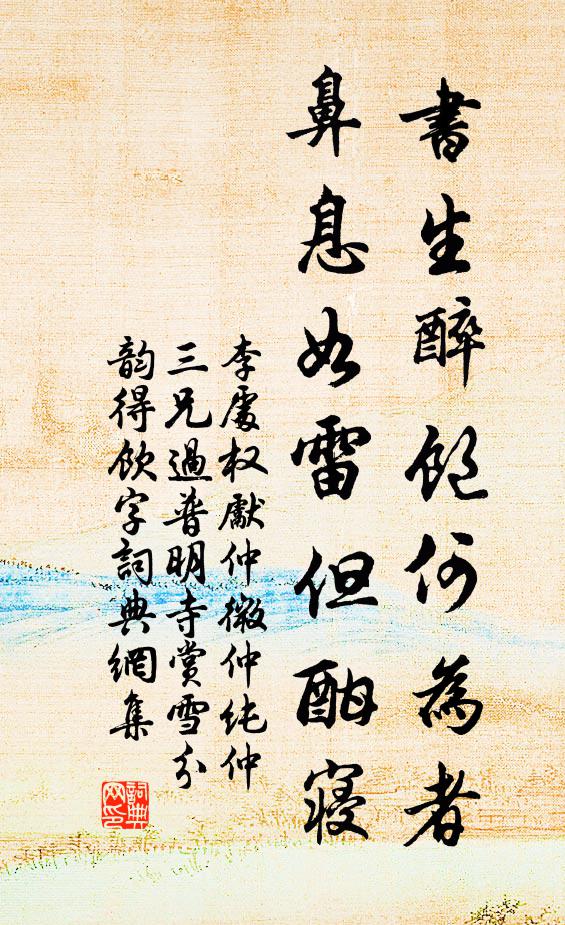 書生醉飽何為者
鼻息如雷但酣寢
李處權獻仲微仲純仲
三兄過普明寺賞雪分
韵得飲字詞典網集
詞典
网印